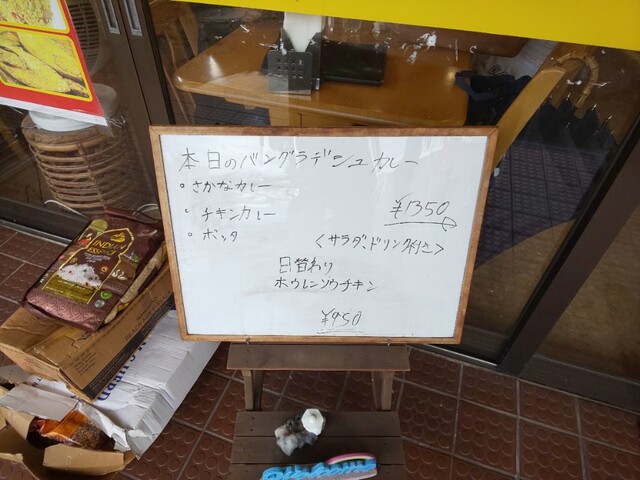 本日のバングラデシュカレー
• さかなカレー
• チキンカレー
¥1350
• ボッタ
<サラダ、ドリンク付き>
日替わり
ホウレンソウチキン
¥950